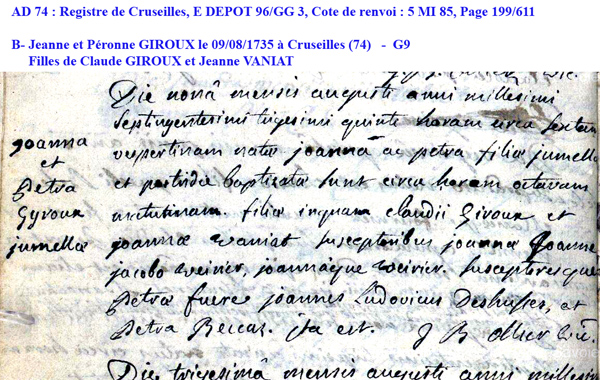 AD 74 : Registre de Cruseilles, E DEPOT 96/GG 3, Cote de renvoi : 5 MI 85, Page 199/611
B- Jeanne et Péronne GIROUX le 09/08/1735 à Cruseilles (74) - G9
Filles de Claude GIROUX et Jeanne VANIAT
Die nonâ mensis augusti anni millesimi
septingentesimi trigesimi quinti horam circa sextam
vespertinam natæ joanna ac petra filiæ jumellæ
et postridie baptizatæ sunt circa horam octavam
matutinam. filiæ inquam claudii Giroux et
joannæ vaniat susceptoribus joannæ joanne
jacobo veirier, joannaque veirier. susceptores que
Petræ fuere joannes Ludovicus Deshusses, et
Petra Beccaz. ita est. J B
joanna
et
Petra
Gyroux
jumellæ
Die trigesimâ mensis augusti anni millesimi